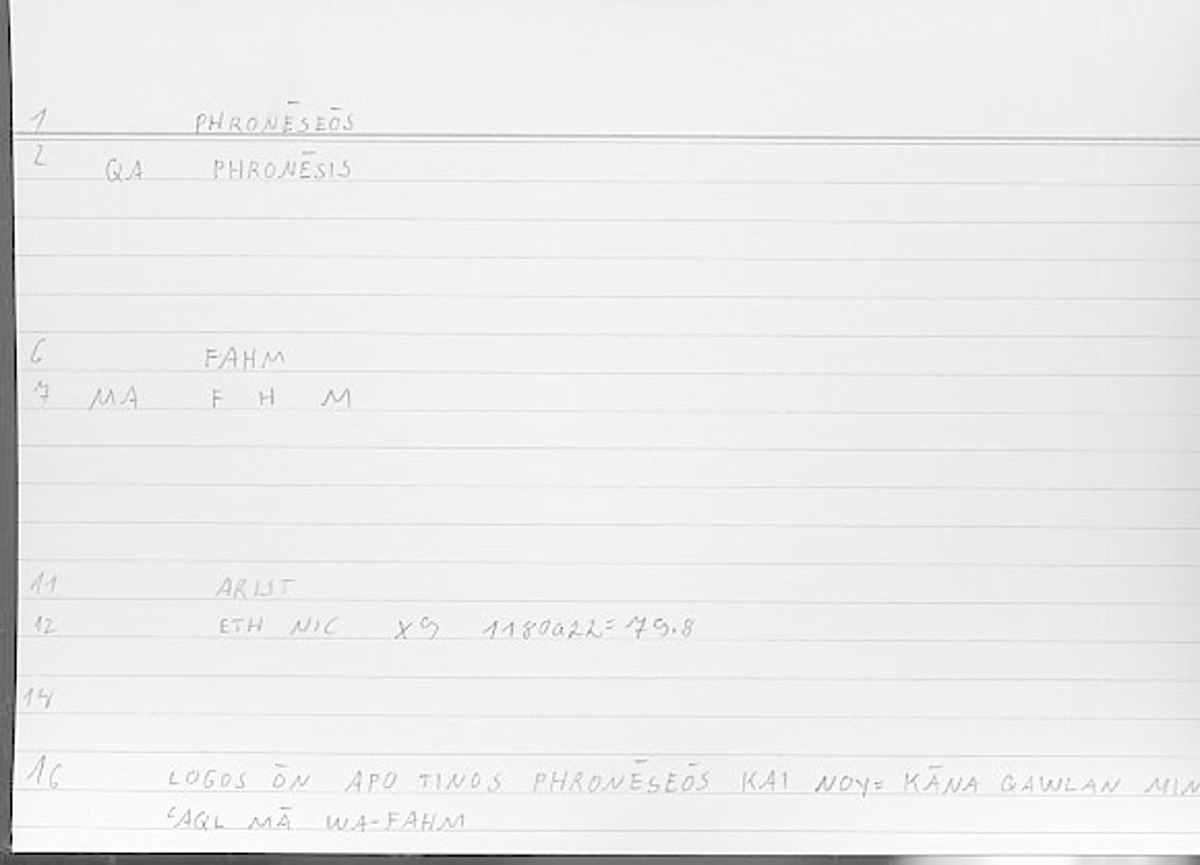 1 PHRONĒSEŌS
2 QA PHRONĒSIS
6 FAHM
7 MA F H M
11 ARIST
12 ETH NIC X9 1180a22=79.8
14
16 LOGOS ŌN APO TINOS PHRONĒSEŌS KAI NOY= KĀNA QAWLAN MIN
ʿAQL MĀ WA-FAHM